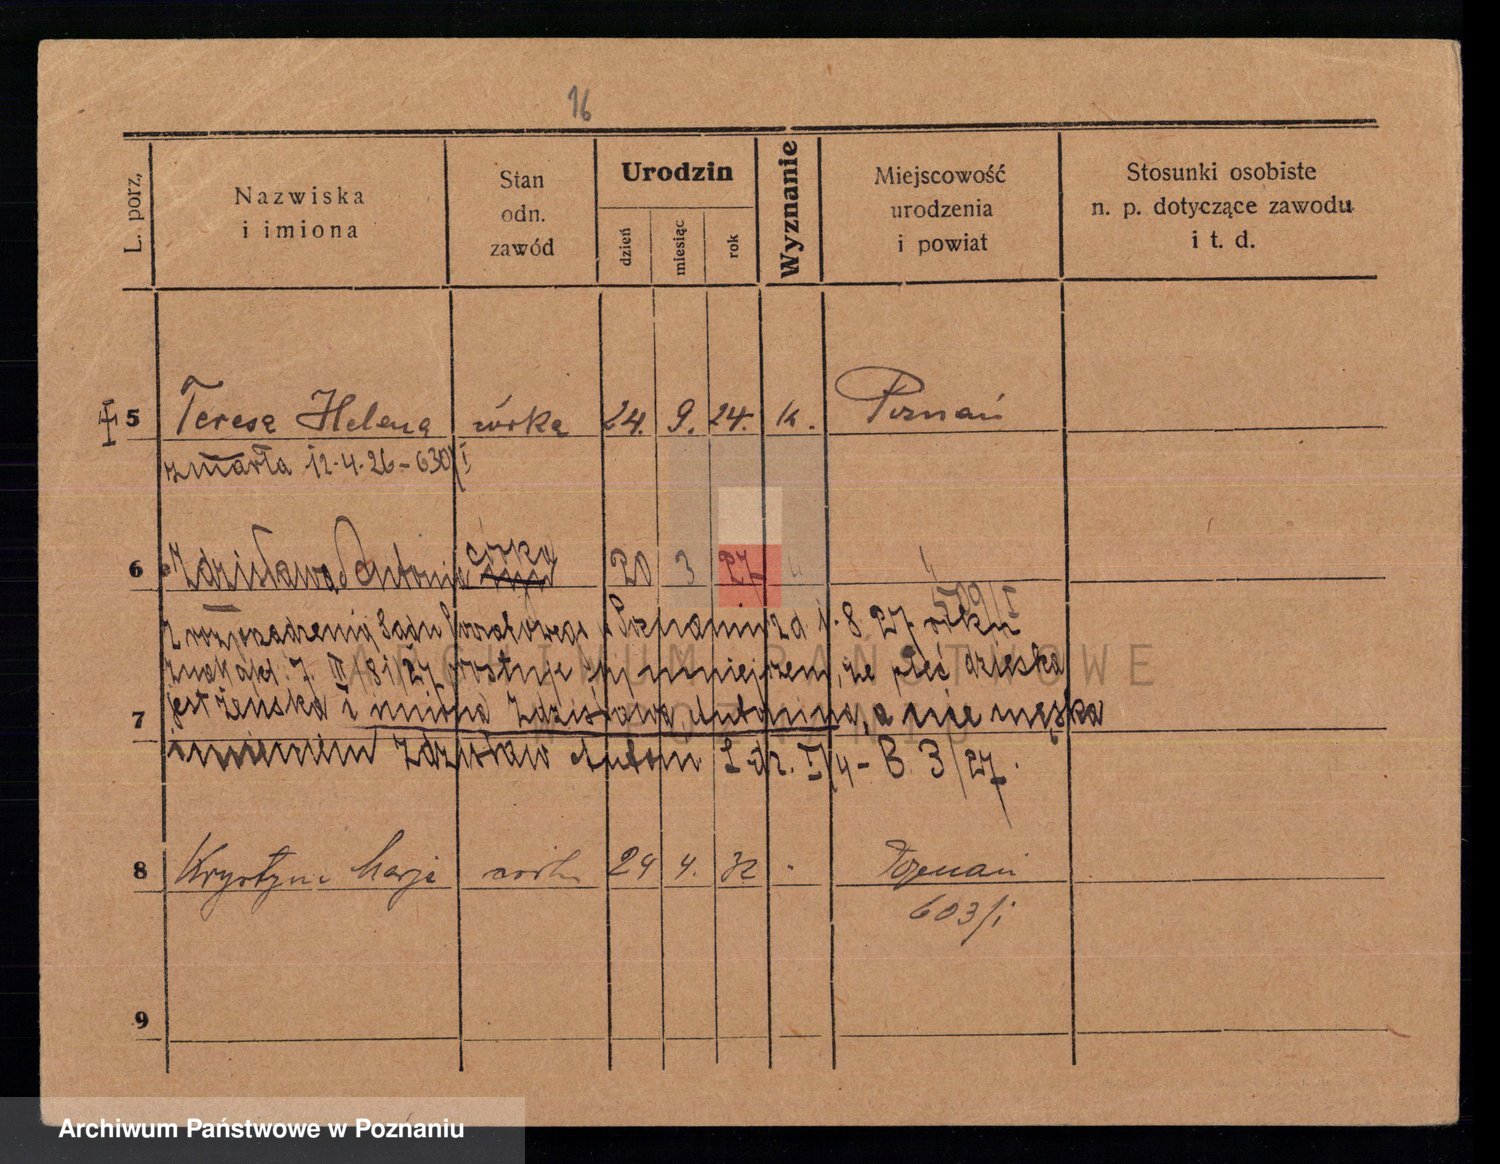 16
L. porz.
Nazwiska
i imiona
Stan
odn.
zawód
Urodzin
dzień
miesiąc
rok
Wyznanie
Miejscowość
urodzenia
i powiat
Stosunki osobiste
n. p. dotyczące zawodu
i t. d.
5 Teresa Helena córka 24. 9. 24. k. Poznań
zmarła 12.4.26 - 630/I
córka
6 Zdzisława Antonina 20 3 27 "
Z rozporządzenia Sądu w Poznaniu z d. 1. 8. 27 roku
prostuje się niniejszem, że płeć dziecka
7 jest żeńska i imiona Zdzisława Antonina, a nie męska
imieniem Zdzisław Antoni L. dz. I/4 - B. 3/27.
8 Krystyna Marja córka 24 4. 32 Poznań
603/i
9
ARCHIWUM PAŃSTWOWE
W POZNANIU
Archiwum Państwowe w Poznaniu